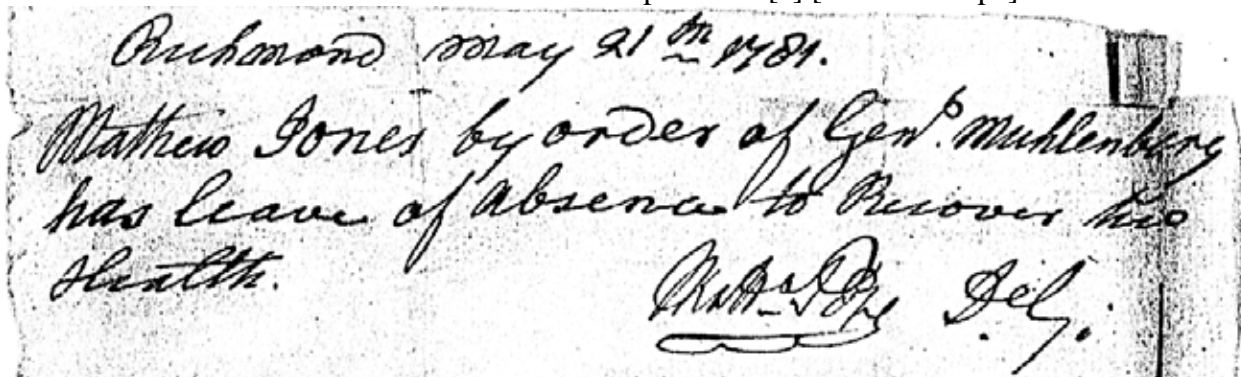 Richmond May 21th 1781.
Mathew Jones by order of Genl. Muhlenberg
has leave of Absence to Recover his
Health.
Matta. Pope